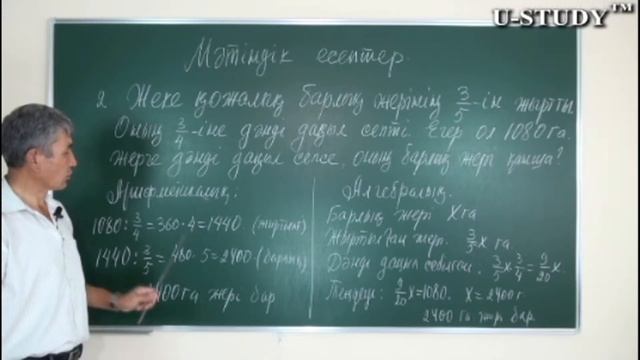 U-STUDY™
Мәтіндік есептер.
2 Жеке қожалық барлық жерінің 3/5-ін жыртты.
Оның 3/4-іне дәнді дақыл септі. Егер ол 1080 га.
жерге дәнді дақыл сепсе, оның барлық жері қанша?
Арифметикалық:
1080 : 3/4 = 360 · 4 = 1440 (жыртылған)
1440 : 3/5 = 480 · 5 = 2400 (барлық)
400 га жері бар
Алгебралық.
Барлық жері X га
Жыртылған жері. 3/5 x га.
Дәнді дақыл себілген. 3/5 x · 3/4 = 9/20 x.
Теңдеу: 9/20 x = 1080. x = 2400 г
2400 га жері бар.